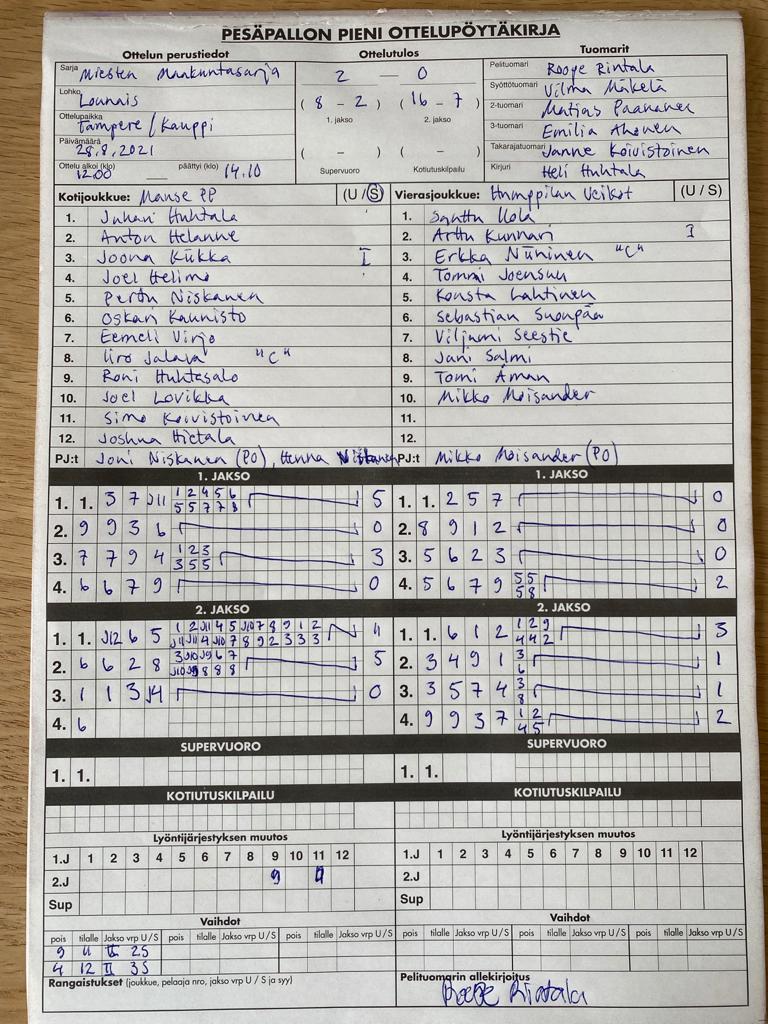 PESÄPALLON PIENI OTTELUPÖYTÄKIRJA
Ottelun perustiedot Ottelutulos Tuomarit
Sarja Miesten Maakuntasarja
Lohko Lounais
Ottelupaikka Tampere / Kauppi
Päivämäärä 28.8.2021
Ottelu alkoi (klo) 12.00 päättyi (klo) 14.10
2 – 0
( 8 – 2 ) ( 16 – 7 )
1. jakso 2. jakso
( – ) ( – )
Supervuoro Kotiutuskilpailu
Pelituomari Roope Rintala
Syöttötuomari Vilma Mäkelä
2-tuomari Matias Paananen
3-tuomari Emilia Ahonen
Takarajatuomari Janne Koivistoinen
Kirjuri Heli Huhtala
Kotijoukkue: Manse PP (U / S)
1. Juhani Huhtala
2. Anton Helanne
3. Joona Kukka I
4. Joel Helimo
5. Perttu Niskanen
6. Oskari Kaunisto
7. Eemeli Virjo
8. Iiro Jalava "C"
9. Roni Huhtasalo
10. Joel Lovikka
11. Simo Koivistoinen
12. Joshua Hietala
PJ:t Joni Niskanen (PO), Henna
Vierasjoukkue: Humppilan Veikot (U / S)
1. Santtu
2. Arttu Kunnari I
3. Erkka Niininen "C"
4. Tommi Joensuu
5. Konsta Lahtinen
6. Sebastian Suonpää
7. Viljami Seestie
8. Jani Salmi
9. Tomi Åman
10. Mikko Moisander
11.
12.
PJ:t Mikko Moisander (PO)
1. JAKSO
1. 1. 3 7 J11 1 2 4 5 6 5
5 5 7 7 8
2. 9 9 3 6 0
3. 7 7 9 4 1 2 3 3
3 5 5
4. 6 6 7 9 0
1. JAKSO
1. 1. 2 5 7 0
2. 8 9 1 2 0
3. 5 6 2 3 0
4. 5 6 7 9 5 5 2
5 8
2. JAKSO
1. 1. J12 6 5 1 2 J11 4 5 J10 7 8 9 1 2 11
J11 J11 4 J10 7 8 9 2 3 3 3
2. 6 6 2 8 3 J10 J9 6 7 5
J10 J9 8 8 8
3. 1 1 3 J4 0
4. 6
2. JAKSO
1. 1. 6 1 2 1 2 9 3
4 4 2
2. 3 4 9 1 3 1
6
3. 3 5 7 4 3 1
8
4. 9 9 3 7 1 2 2
4 5
SUPERVUORO SUPERVUORO
1. 1. 1. 1.
KOTIUTUSKILPAILU KOTIUTUSKILPAILU
Lyöntijärjestyksen muutos Lyöntijärjestyksen muutos
1.J 1 2 3 4 5 6 7 8 9 10 11 12 1.J 1 2 3 4 5 6 7 8 9 10 11 12
2.J 9 2.J
Sup Sup
Vaihdot Vaihdot
pois tilalle Jakso vrp U / S pois tilalle Jakso vrp U / S pois tilalle Jakso vrp U / S pois tilalle Jakso vrp U / S pois tilalle Jakso vrp U / S pois tilalle Jakso vrp U / S
9 11 II 2S
4 12 II 3S
Rangaistukset (joukkue, pelaaja nro, jakso vrp U / S ja syy)
Pelituomarin allekirjoitus
Roope Rintala